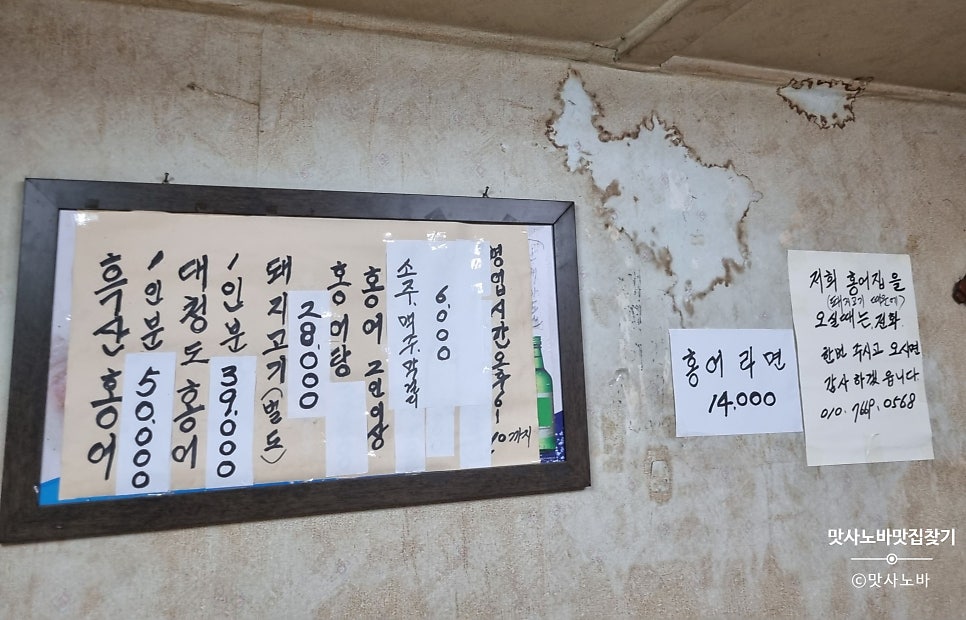 흑산홍어
1인분 50,000
대청도 홍어
1인분 39,000
돼지고기(별도)
28,000
홍어탕
홍어 2인이상
소주.맥주.막걸리
6,000
영업시간 오후 6시
10까지
홍어 라면
14.000
저희 홍어집을
(돼지고기 때문에)
오실때는 전화
한번 주시고 오시면
감사 하겠읍니다
맛사노바맛집찾기
©맛사노바